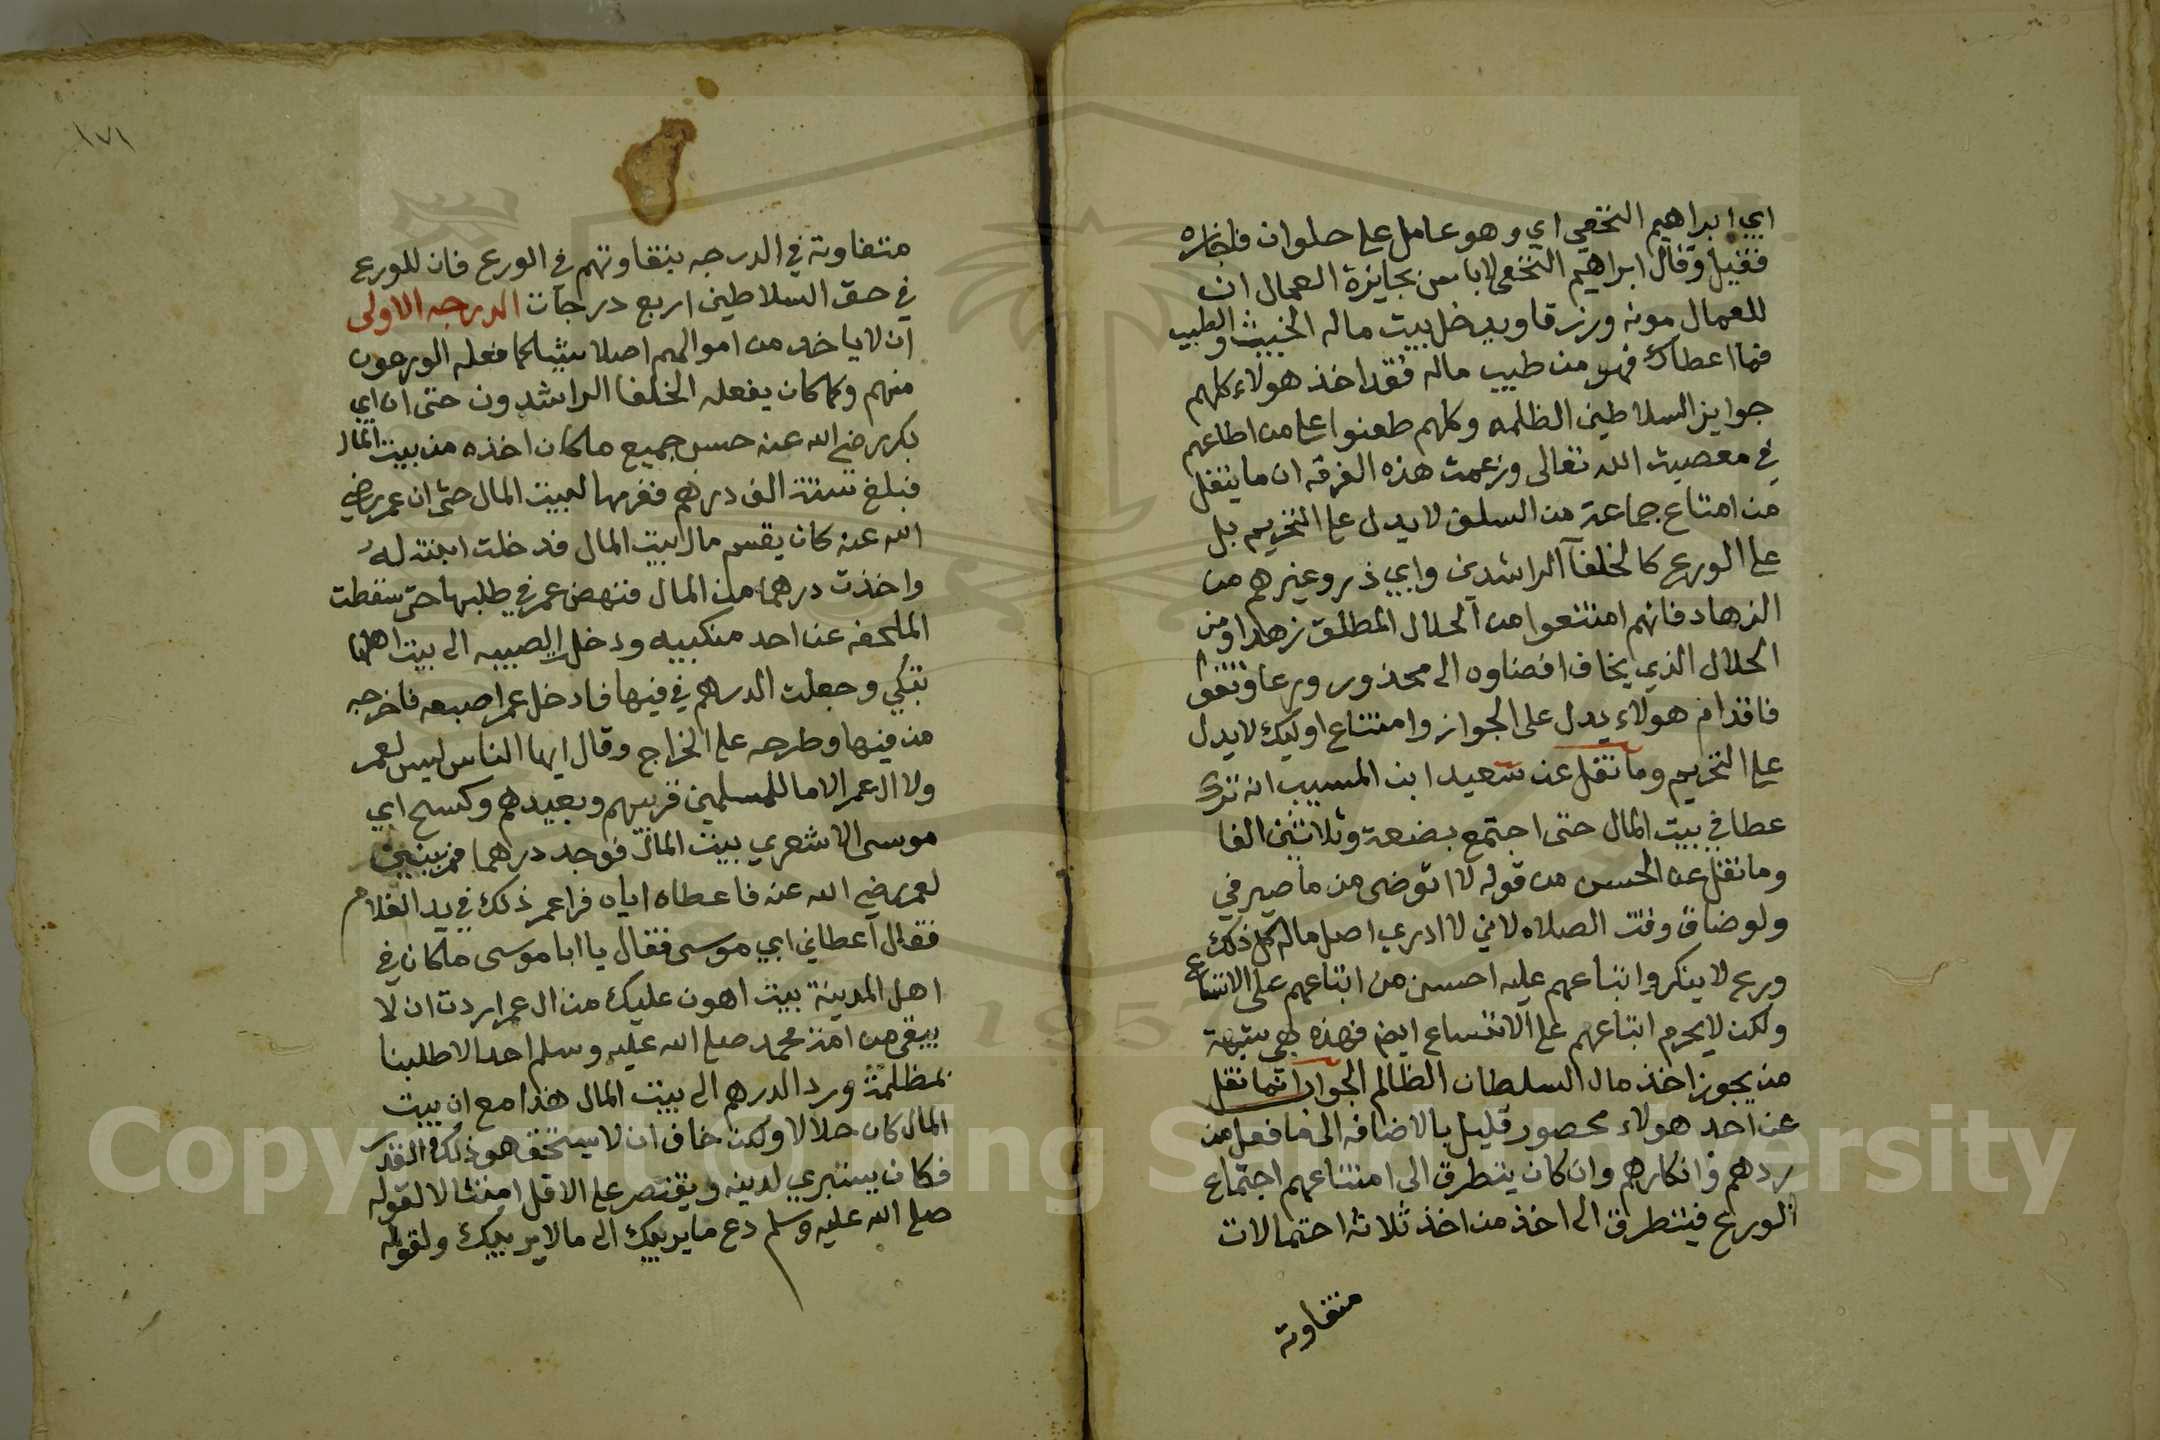 اي ابراهيم النخعي اي وهو عامل علي حلوان فلجازه
فقيل وقال ابراهيم النخعي لا باس بجايزة العمال ان
للعمال مونه ورزقا ويدخل بيت ماله الخبيث والطيب
فما اعطاك فهو من طيب ماله فقد اخذ هولاء كلهم
جوايز السلاطين الظلمه وكلهم طعنوا علي من اطاعهم
في معصية الله تعالى وزعمت هذه الفرقه ان ما ينقل
من امتناع جماعة من السلف لا يدل علي التحريم بل
علي الورع كالخلفآ الراشدين وابي ذر وغيرهم من
الزهاد فانهم امتنعوا من الحلال المطلق زهدا ومن
الحلال الذي يخاف افضاوه الى محذور ورعا وتقوا
فاقدام هولاء يدل على الجواز وامتناع اوليك لا يدل
علي التحريم وما نقل عن سعيد ابن المسيب انه ترك
عطا في بيت المال حتى اجتمع بضعة وثلاثين الفا
وما نقل عن الحسن من قوله لا اتوضى من ما صيرفي
ولو ضاق وقت الصلاه لاني لا ادري اصل ماله كل ذلك
ورع لا ينكر واتباعهم عليه احسن من اتباعهم على الاتساع
ولكن لا يحرم اتباعهم علي الاتساع ايض فهذه هي شبهة
من يجوز اخذ مال السلطان الظالم الجواب انما نقل
عن احد هولاء محصور قليل بالاضافه الى ما فعل من
ردهم وانكارهم وان كان يتطرق الى امتناعهم اجتماع
الورع فيتطرق الى اخذ من اخذ ثلاثه احتمالات
متفاوتة
١٧١
متفاوتة في الدرجه بتفاوتهم في الورع فان للورع
في حق السلاطين اربع درجات الدرجه الاولى
ان لا ياخد من اموالهم اصلا شيئا كما فعله الورعون
منهم وكما كان يفعله الخلفا الراشدون حتى ان ابي
بكر رضي الله عنه حسب جميع ما كان اخذه من بيت المال
فبلغ ستة الف درهم فغرمها لبيت المال حتى ان عمر رضي
الله عنه كان يقسم مال بيت المال فدخلت ابنة له
واخذت درهما من المال فنهض عمر في طلبها حتى سقطت
الملحفه عن احد منكبيه ودخل الصبيه الى بيت اهلها
تبكي وجعلت الدرهم في فيها فادخل عمر اصبعه فاخرجه
من فيها وطرحه علي الخراج وقال ايها الناس ليس لعمر
ولا ال عمر الا ما للمسلمين قريبهم وبعيدهم وكسح ابي
موسى الاشعري بيت المال فوجد درهما فمر بني
لعمر رضي الله عنه فاعطاه اياه فرا عمر ذلك في يد الغلام
فقال اعطاني ابي موسى فقال يا ابا موسى ما كان في
اهل المدينة بيت اهون عليك من ال عمر اردت ان لا
يبقى من امة محمد صلي الله عليه وسلم احد الا طلبنا
بمظلمة ورد الدرهم الى بيت المال هذا مع ان بيت
المال كان حلالا ولكن خاف ان لا يستحق هو ذلك القدر
فكان يستبري لدينه ويقتصر علي الاقل امتثالا لقوله
صلي الله عليه وسلم دع ما يريبك الى ما لا يريبك ولقوله
Copyright © King Saud University
1957